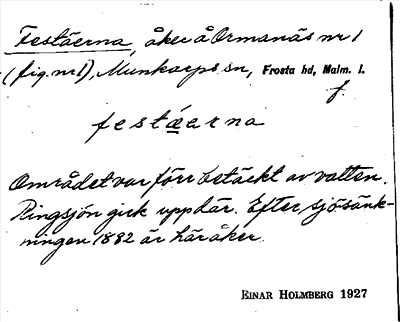 Festäerna, åker å Ormanäs nr 1
(fig. nr 1), Munkarps sn, Frosta hd, Malm. l.
f.
festáerna
Området var förr betäckt av vatten.
Ringsjön gick upp där. Efter sjösänk-
ningen 1882 är här åker.
EINAR HOLMBERG 1927